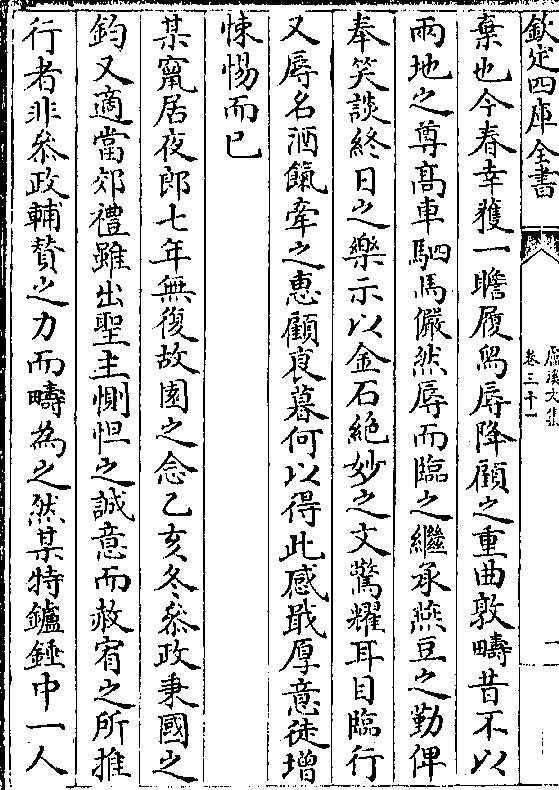 欽定四庫全書
盧溪文集
卷三十一
一
棄也今春幸獲一瞻履舄辱降顧之重曲敦疇昔不以
兩地之尊髙車駟馬儼然辱而臨之繼承燕豆之勤俾
奉笑談終日之樂示以金石絶妙之文驚耀耳目臨行
又辱名酒餼牽之惠顧衰暮何以得此感戢厚意徒增
悚惕而已
某竄居夜郎七年無復故園之念乙亥冬叅政秉國之
鈞又適當郊禮雖出聖主惻怛之誠意而赦宥之所推
行者非叅政輔賛之力而疇為之然某特鑪錘中一人